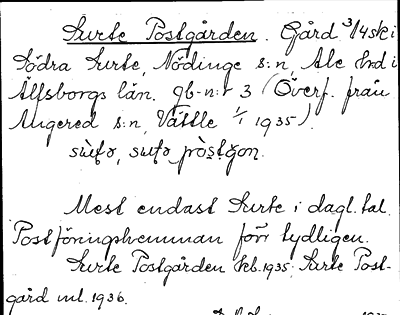 Surte Postgården. Gård 3/4 sk i
Södra Surte, Nödinge s:n, Ale hrd i
Älfsborgs län. gb-n:r 3 (Överf. från
Angered s:n, Vättle 1/1 1935).
Mest endast Surte i dagl. tal.
Postföringshemman förr tydligen.
Surte Postgården kb. 1935; Surte Post-
gård ml. 1936.